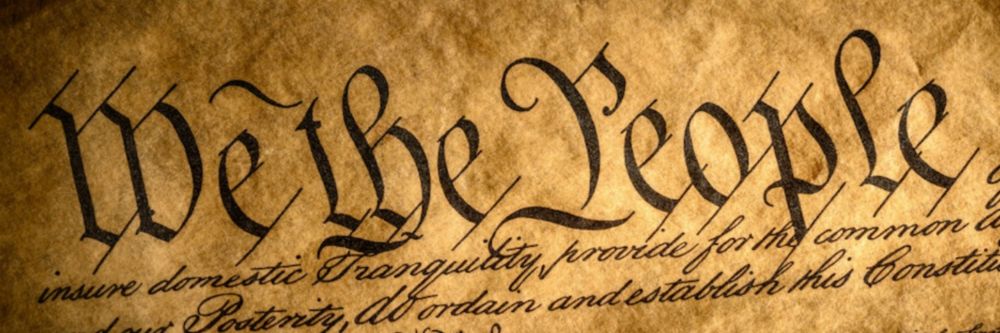 We the People
insure domestic Tranquility, provide for the common
our Posterity, do ordain and establish this Constitu